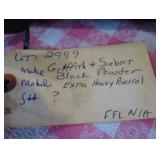 LOT: 2999
Make Griffith & Siebert
Model Black Powder
Extra Heavy Barrel
S# ?
FFL N/A